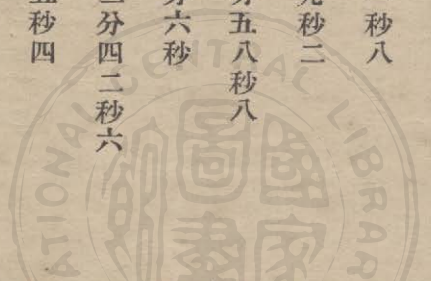 秒八
秒二
分五八秒八
分六秒
分四二秒六
秒四
NATIONAL CENTRAL LIBRAR
國家
圖書
館